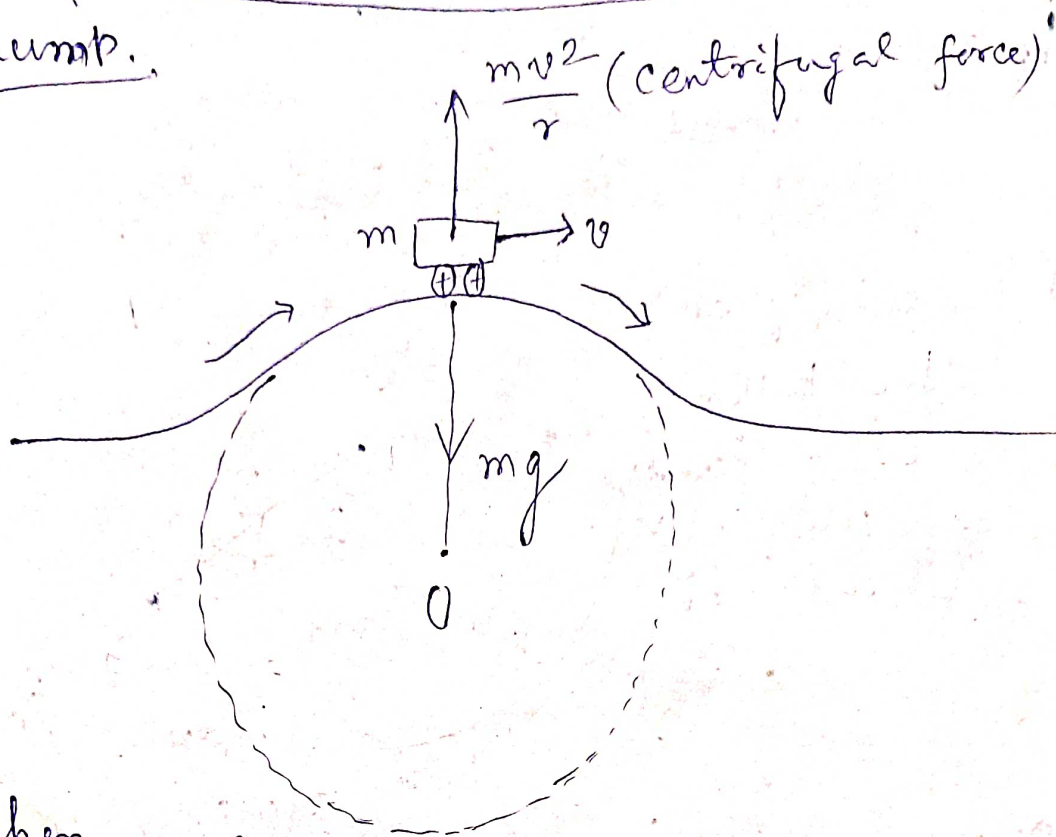 ump.
mv²/r (centrifugal force)
m
v
mg
O